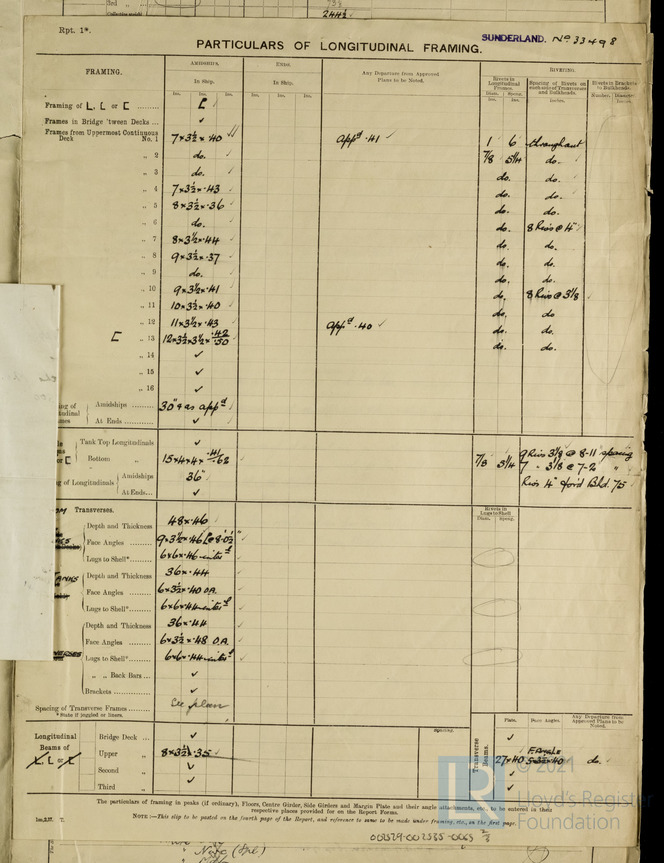 244½
Rpt. 1*.
SUNDERLAND. No. 33498
PARTICULARS OF LONGITUDINAL FRAMING.
FRAMING.
AMIDSHIPS.
ENDS.
In Ship.
In Ship.
Any Departure from Approved Plans to be Noted.
RIVETING.
Rivets in Longitudinal Frames.
Diam. Spacng.
Rivets in Brackets to Bulkheads.
Ins. Ins. Ins. Ins. Ins. Ins.
Framing of L, L or [ ........ [
Frames in Bridge 'tween Decks ... ✓
Frames from Uppermost Continuous
Deck No. 1 7×3½×·40 ✓ appd ·41 ✓ 1 6 throughout
„ 2 do. ✓ 7/8 5¼ do.
„ 3 do. ✓ do. do.
„ 4 7×3½×·43 do. do.
„ 5 8×3½×·36 do. do.
„ 6 do. do. 8 Rivs @ 4"
„ 7 8×3½×·44 do. do.
„ 8 9×3½×·37 do. do.
„ 9 do. do. do.
„ 10 9×3½×·41 do. 8 Rivs @ 3⅛
„ 11 10×3½×·40 do. do
„ 12 11×3½×·43 appd ·40 ✓ do. do.
[ „ 13 12×3½×3½×·42/·50 do. do.
„ 14 ✓
„ 15 ✓
„ 16 ✓
Amidships ......... 30" & as appd
At Ends ............ ✓
Tank Top Longitudinals ✓
or [ Bottom „ 15×4×4×·41/·62 7/8 3¼
9 Rivs 3⅛ @ 8-11" spacing
7 " 3⅛ @ 7-2" "
g of Longitudinals Amidships 36"
At Ends... ✓
Transverses.
Rivets in Lugs to Shell
Diam. Spacng.
Depth and Thickness 48×·46
Face Angles .........
Lugs to Shell*......
TANKS Depth and Thickness 36×·44
Face Angles ......... 6×3½×·40 O.A.
Lugs to Shell*......
Depth and Thickness 36×·44
Face Angles ......... 6×3½×·48 O.A.
Lugs to Shell*......
„ „ Back Bars... ✓
Brackets............ ✓
Spacing of Transverse Frames ...... See plan
* State if joggled or liners.
Longitudinal Beams of L, L or [
Spacing.
Transverse Beams.
Plate. Face Angles. Any Departure from Approved Plans to be Noted.
Bridge Deck ... ✓ ✓
Upper „ 8×3½×·35 27×·40 do.
Second „ ✓ ✓
Third „ ✓ ✓
The particulars of framing in peaks (if ordinary), Floors, Centre Girder, Side Girders and Margin Plate and their angle attachments, etc., to be entered in their
respective places provided for on the Report Forms.
NOTE:—This slip to be pasted on the fourth page of the Report, and reference to same to be made under framing, etc., on the first page.
002529-002535-0063
© 2021
Lloyd's Register
Foundation